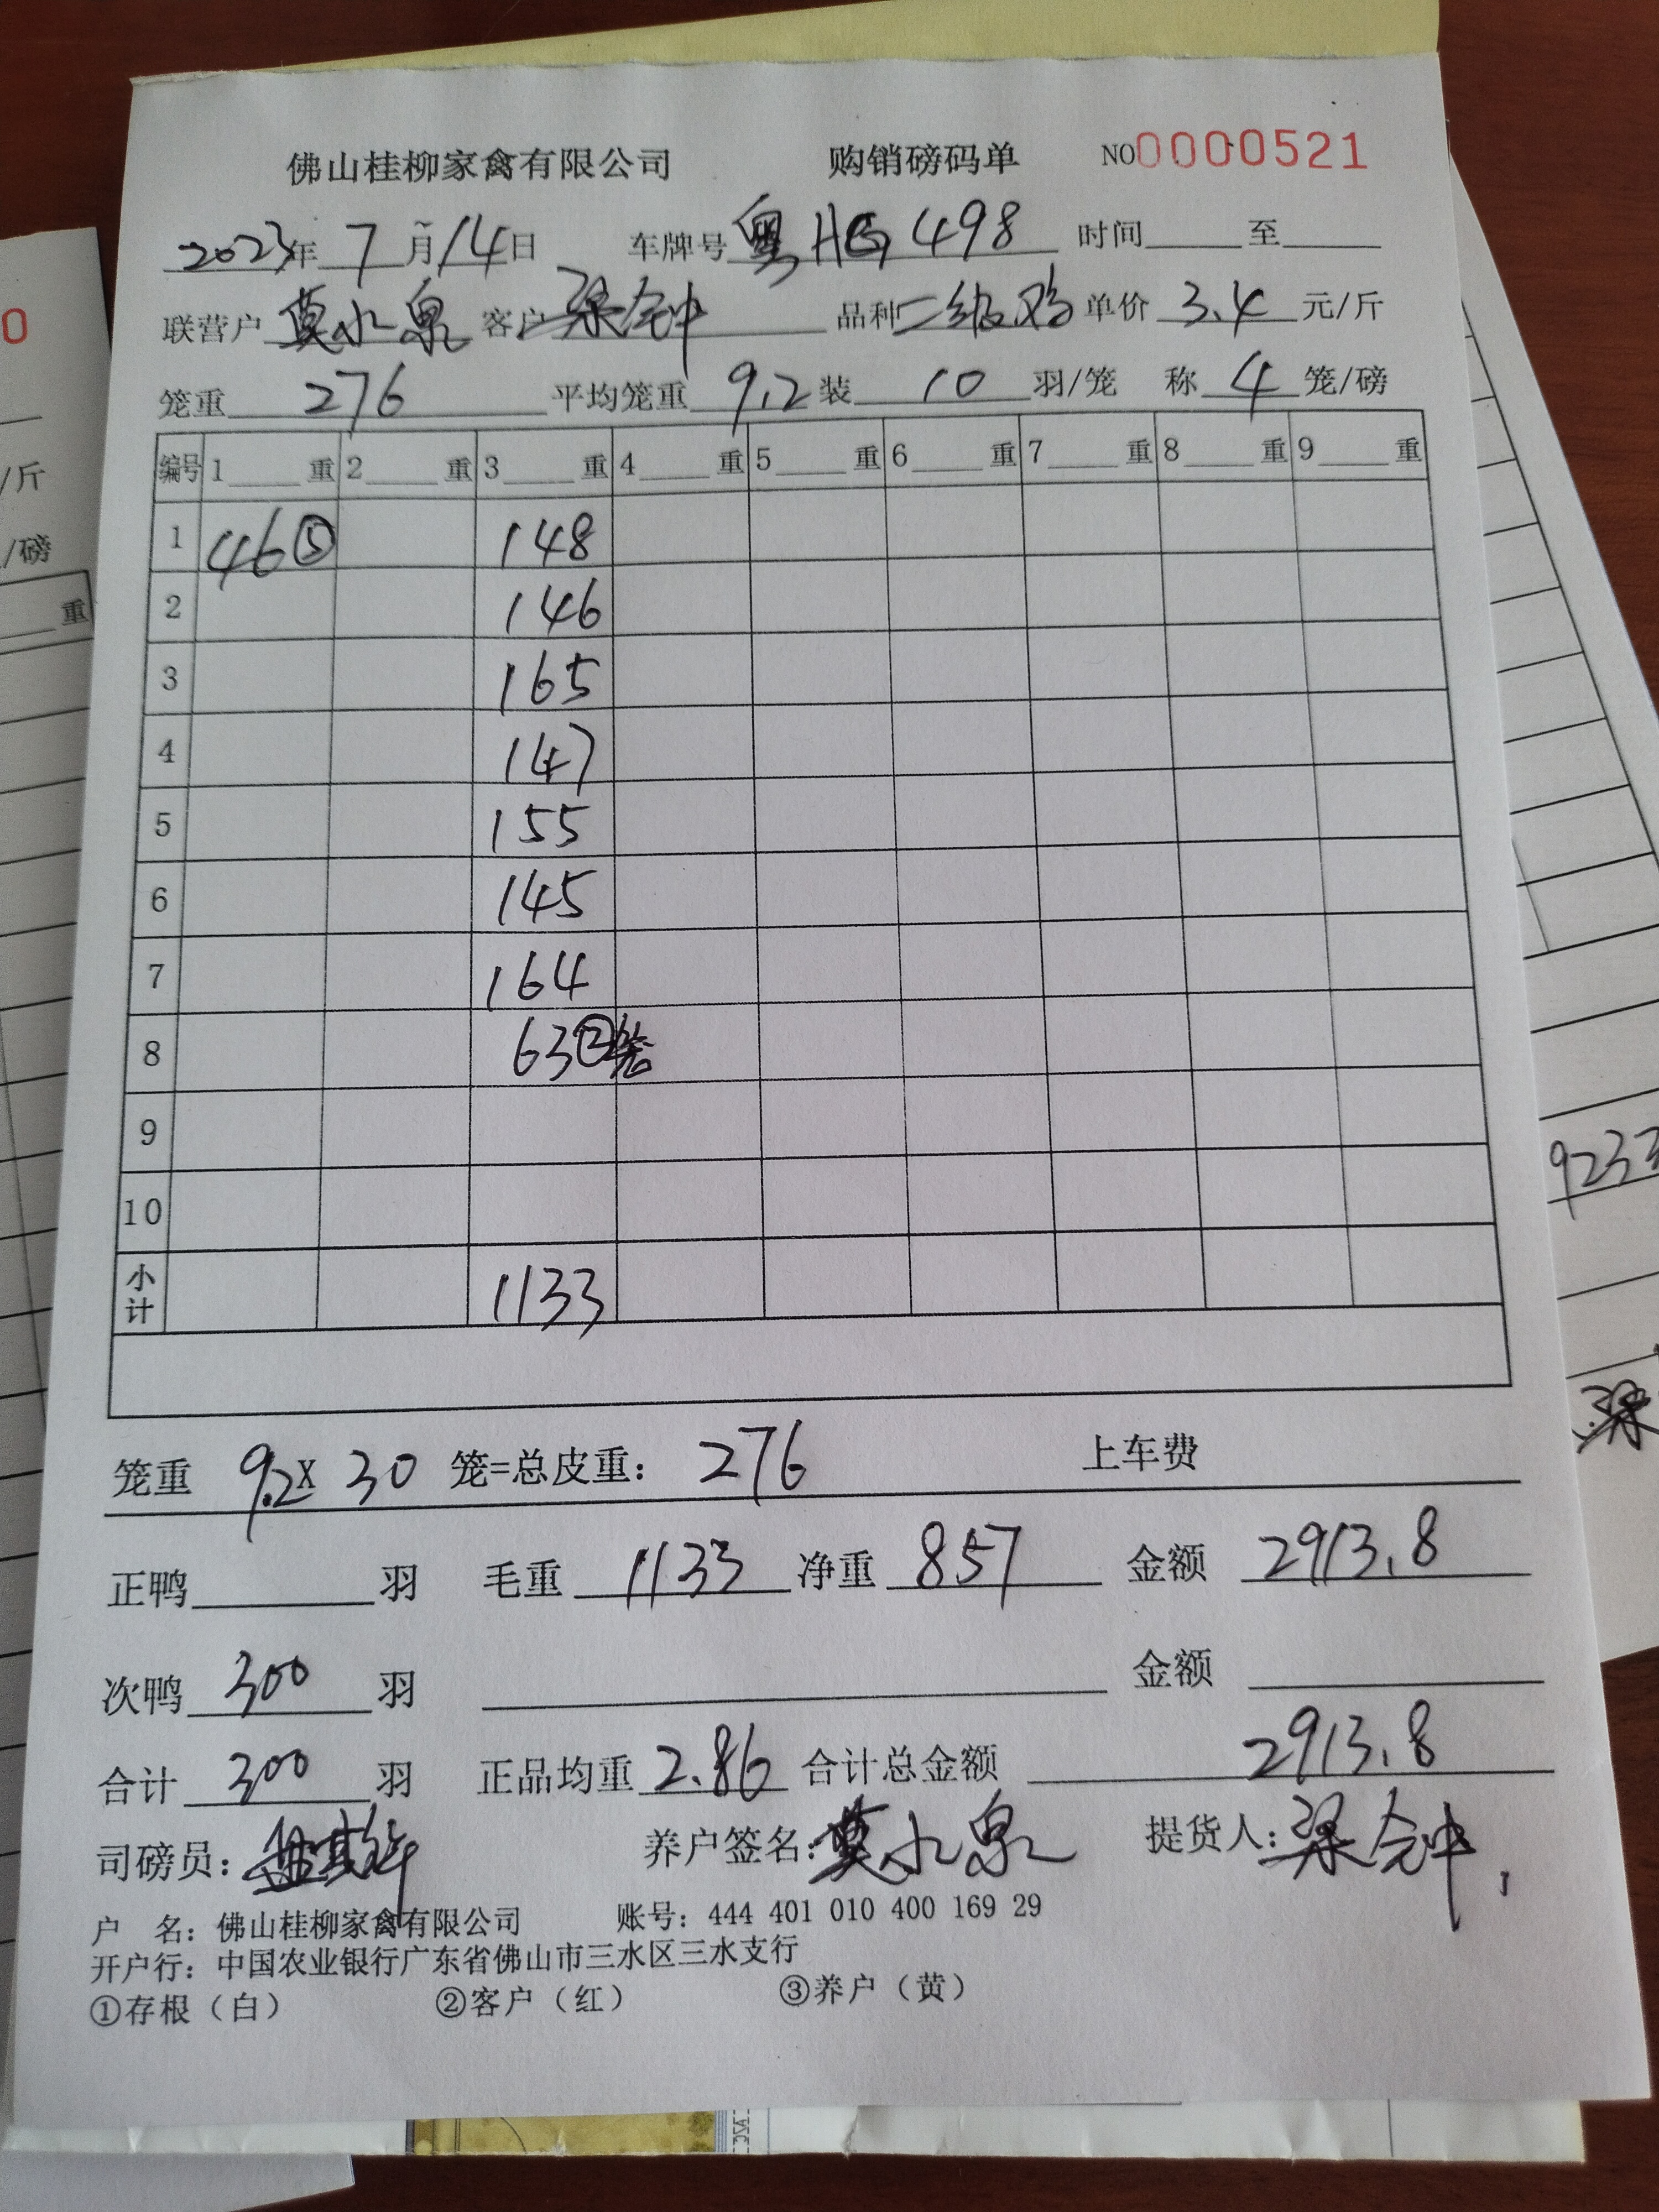 佛山桂柳家禽有限公司 购销磅码单 NO0000521
2023年 7 月 14 日 车牌号 粤HG498 时间 至
联营户 莫水泉 客户 梁金钟 品种 二级鸡 单价 3.4 元/斤
笼重 276 平均笼重 9.2 装 10 羽/笼 称 4 笼/磅
编号 1 重 2 重 3 重 4 重 5 重 6 重 7 重 8 重 9 重
1 46⑤ 148
2 146
3 165
4 147
5 155
6 145
7 164
8 63②笼
9
10
小计 1133
笼重 9.2 X 30 笼=总皮重: 276 上车费
正鸭 羽 毛重 1133 净重 857 金额 2913.8
次鸭 300 羽 金额
合计 300 羽 正品均重 2.86 合计总金额 2913.8
司磅员: 养户签名: 莫水泉 提货人: 梁金钟
户 名: 佛山桂柳家禽有限公司 账号: 444 401 010 400 169 29
开户行: 中国农业银行广东省佛山市三水区三水支行
①存根(白) ②客户(红) ③养户(黄)
0
/斤
/磅
重
923
梁